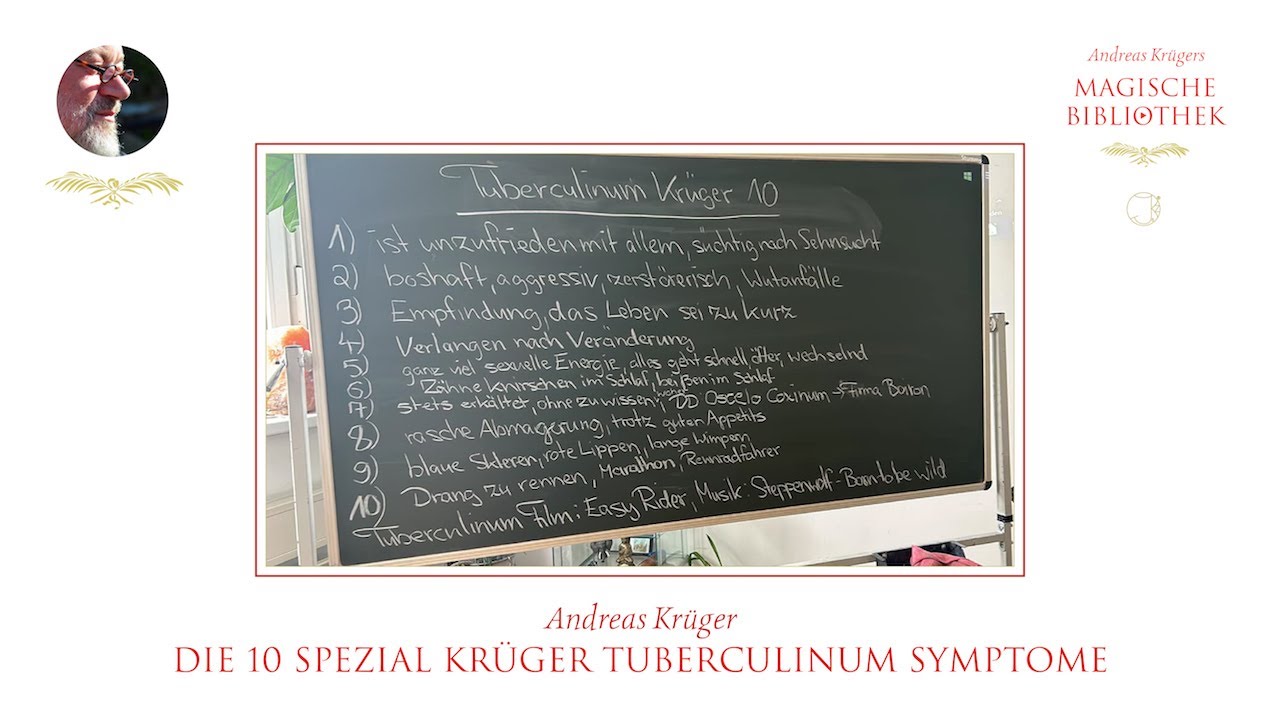 Andreas Krügers
MAGISCHE
BIBLIOTHEK
Tuberculinum Krüger 10
1) ist unzufrieden mit allem, süchtig nach Sehnsucht
2) boshaft, aggressiv, zerstörerisch, Wutanfälle
3) Empfindung, das Leben sei zu kurz
4) Verlangen nach Veränderung
5) ganz viel sexuelle Energie, alles geht schnell, öfter, wechselnd
6) Zähne knirschen im Schlaf, beißen im Schlaf
7) stets erkältet, ohne zu wissen woher, DD Oscelo Coxinum → Firma Boiron
8) rasche Abmagerung, trotz guten Appetits
9) blaue Skleren, rote Lippen, lange Wimpern
10) Drang zu rennen, Marathon, Rennradfahrer
Tuberculinum Film: Easy Rider, Musik: Steppenwolf - Born to be wild
Andreas Krüger
DIE 10 SPEZIAL KRÜGER TUBERCULINUM SYMPTOME